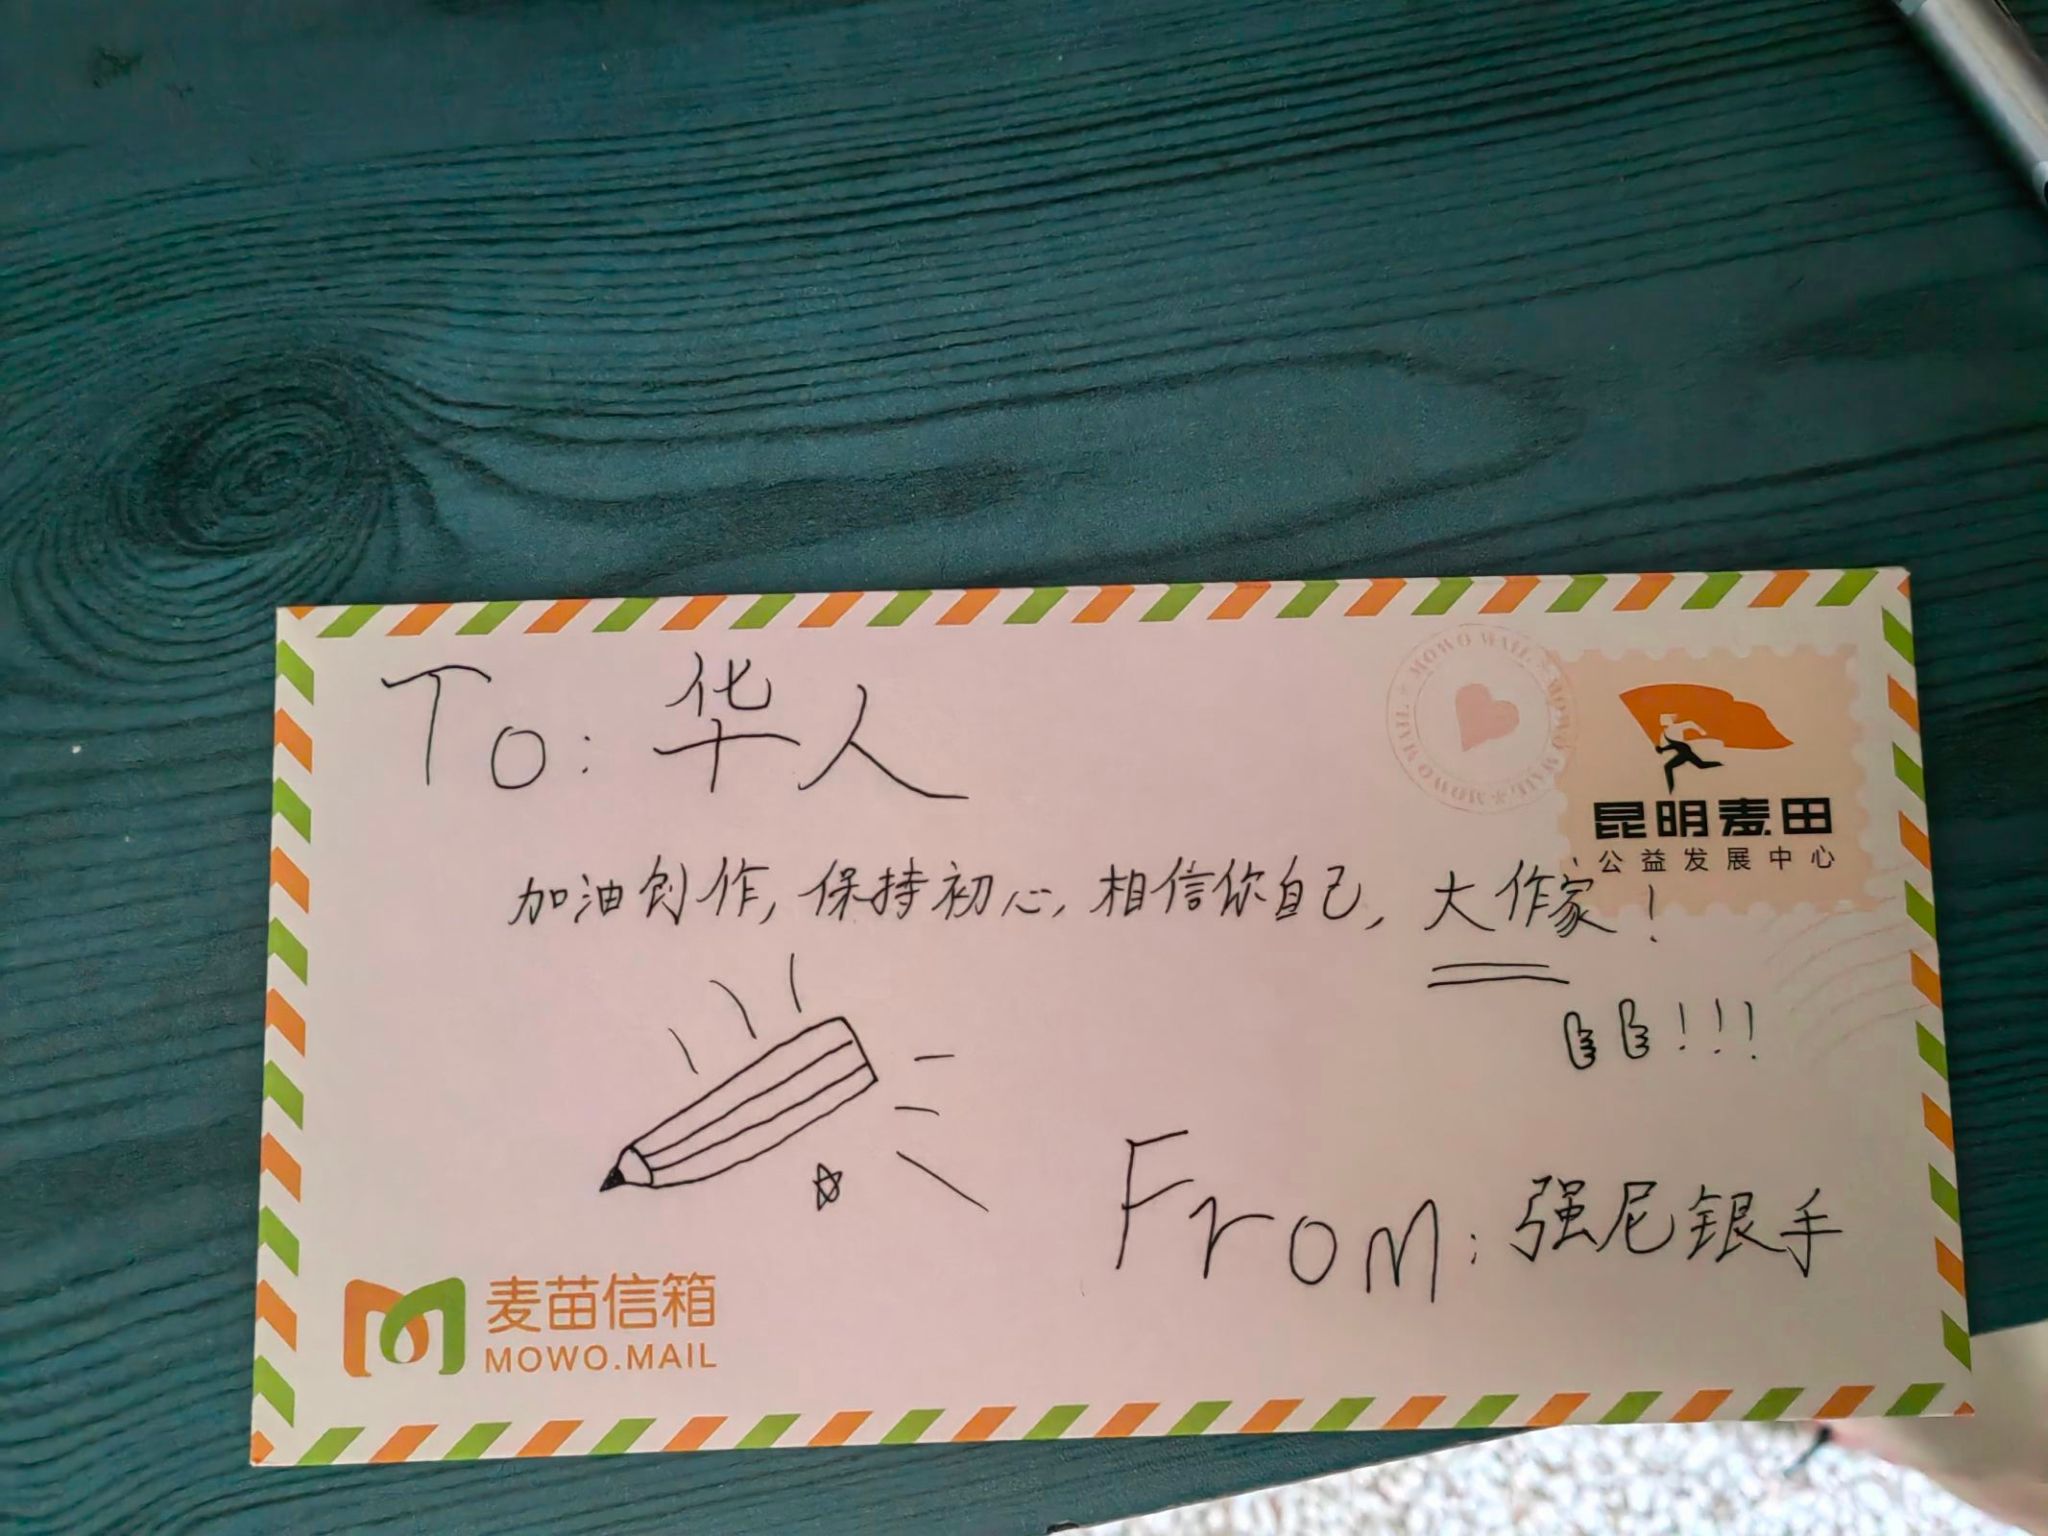 To: 华人
MOWO MAIL * MOWO MAIL * MOWO MAIL *
昆明麦田
公益发展中心
加油创作, 保持初心, 相信你自己, 大作家!
!!!
From: 强尼银手
麦苗信箱
MOWO.MAIL